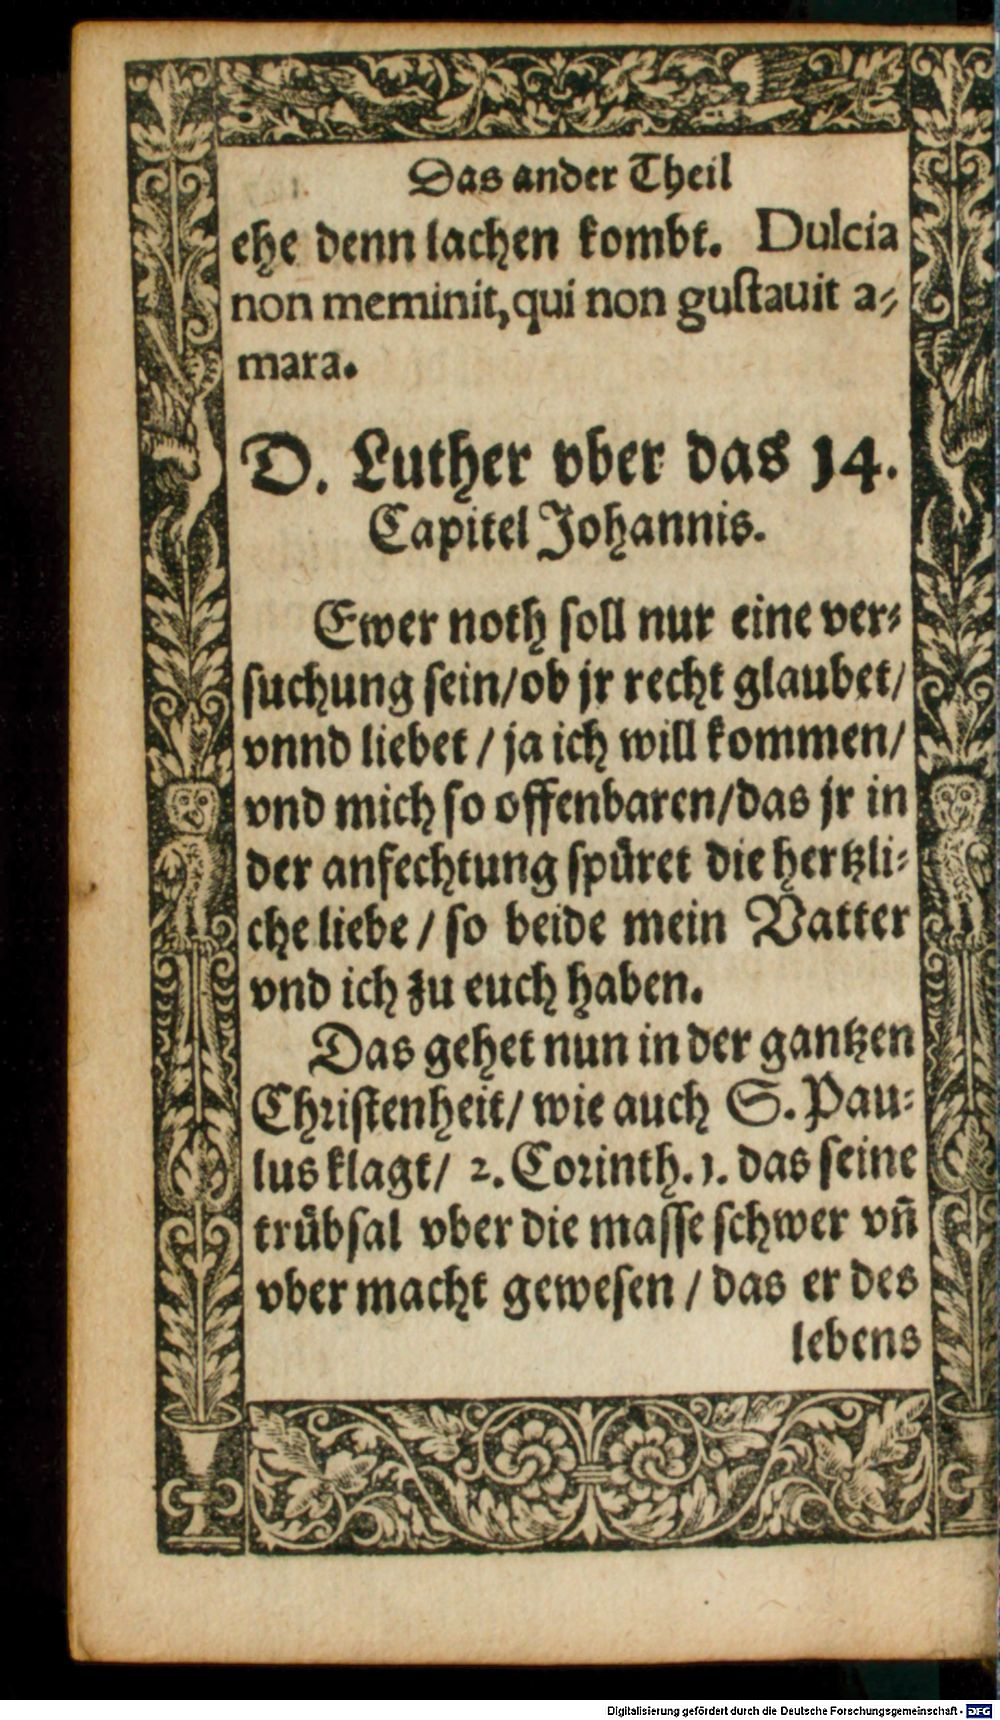 Das ander Theil
ehe denn lachen kombt. Dulcia
non meminit, qui non gustauit a-
mara.
D. Luther vber das 14.
Capitel Johannis.
Ewer noth soll nur eine ver-
suchung sein/ob jr recht glaubet/
vnnd liebet / ja ich will kommen/
vnd mich so offenbaren/das jr in
der anfechtung spüret die hertzli-
che liebe / so beide mein Vatter
vnd ich zu euch haben.
Das gehet nun in der gantzen
Christenheit/ wie auch S. Pau-
lus klagt/ 2. Corinth. 1. das seine
trübsal vber die masse schwer vñ
vber macht gewesen / das er des
lebens
Digitalisierung gefördert durch die Deutsche Forschungsgemeinschaft - DFG